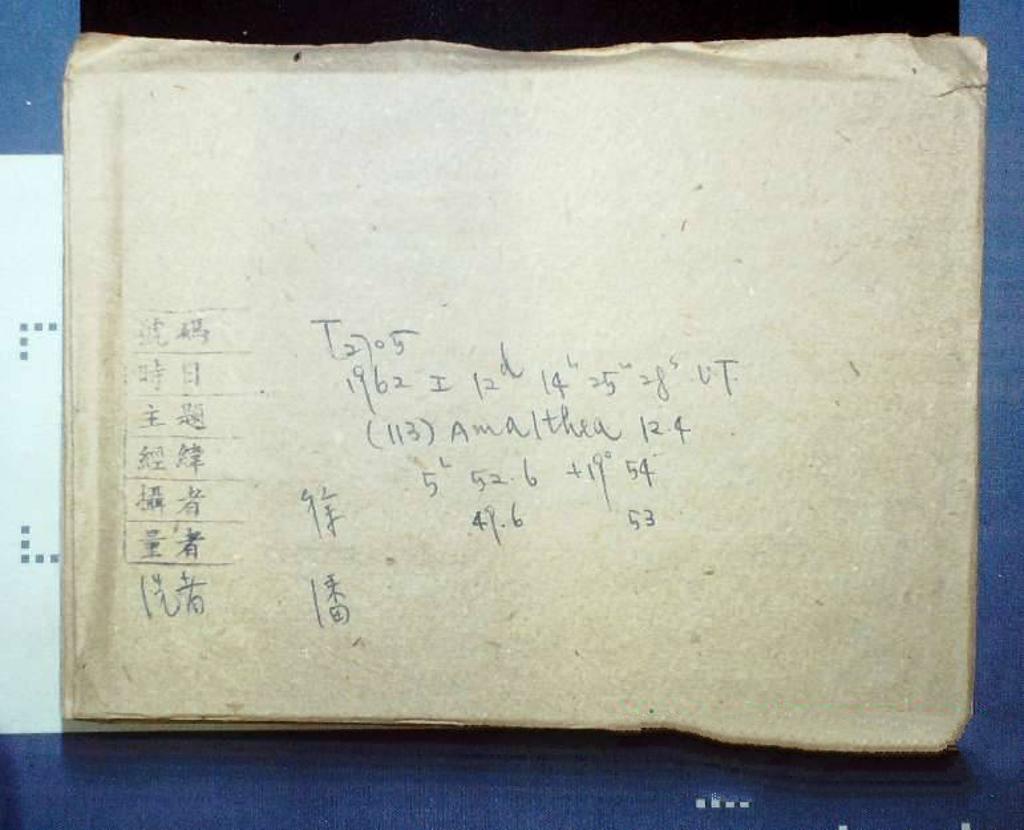 號碼 T2705
時日 1962 I 12d 14h 25m 28s U.T.
主題 (113) Amalthea 12.4
經緯 5h 52.6 +19° 54
攝者 徐 49.6 53
量者
洗者 潘